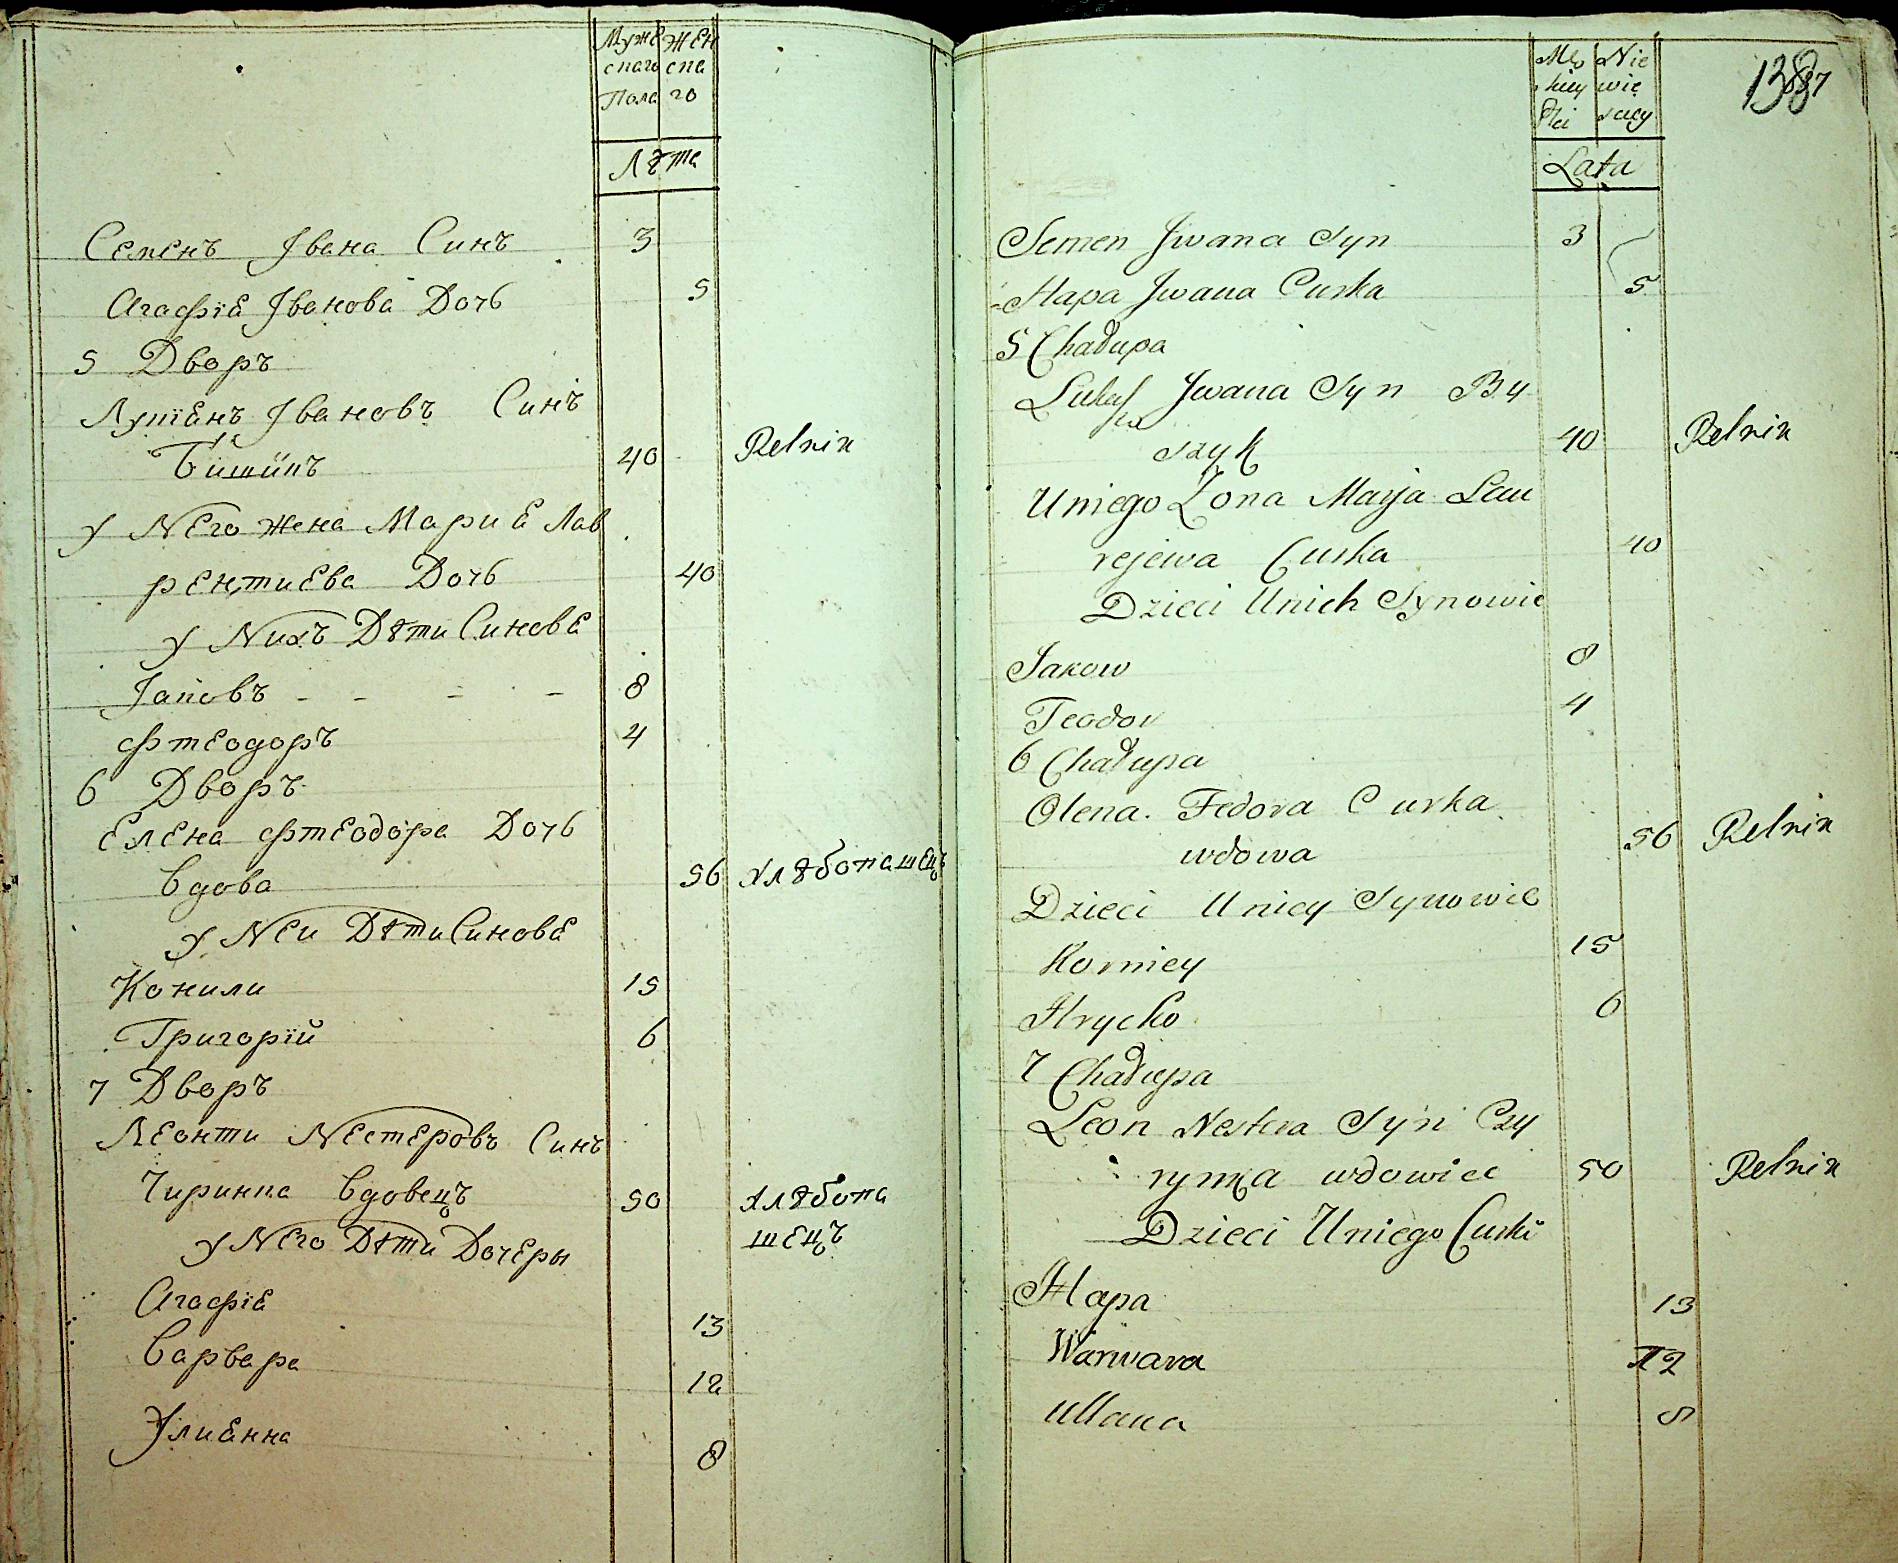 Муже Жен
скаго ска
Пола го
Лѣта
Семенъ Iвана Синъ 3
Агафiѣ Iванова Дочь 5
5 Дворъ
Лукiянъ Iвановъ Синъ
Бишикъ 40 Relnik
У Него жена Мариѣ Лав
рентиева Дочь 40
У Нихъ Дѣти Синовѣ
Iаковъ - - - - 8
Фтеодоръ 4
6 Дворъ
Елена Фтеодора Дочь
Вдова 56 Хлѣбопашецъ
У Неи Дѣти Синовѣ
Конили 15
Григорiй 6
7 Дворъ
Леонти Нестеровъ Синъ
Чиринка Вдовецъ 50 Хлѣбопа
шецъ
У Него Дѣти Дочеры
Агафiѣ 13
Варвара 12
Улиѣнна 8
Męs Nie
kiey wie
Płci sciey
Lata
Semen Jwana Syn 3
Hapa Jwana Curka 5
5 Chałupa
Lukasz Jwana Syn By
szyk 40 Relnik
Uniego Żona Marja Law
rejewa Curka 40
Dzieci Unich Synowie
Jakow 8
Teodor 4
6 Chałupa
Olena Fedora Curka
wdowa 56 Relnik
Dzieci Unicy Synowie
Korniey 15
Hrycko 6
7 Chałupa
Leon Nestera Syn Czy
rynka wdowiec 50 Relnik
Dzieci Uniego Curki
Hapa 13
Warwara 12
Ullana 8